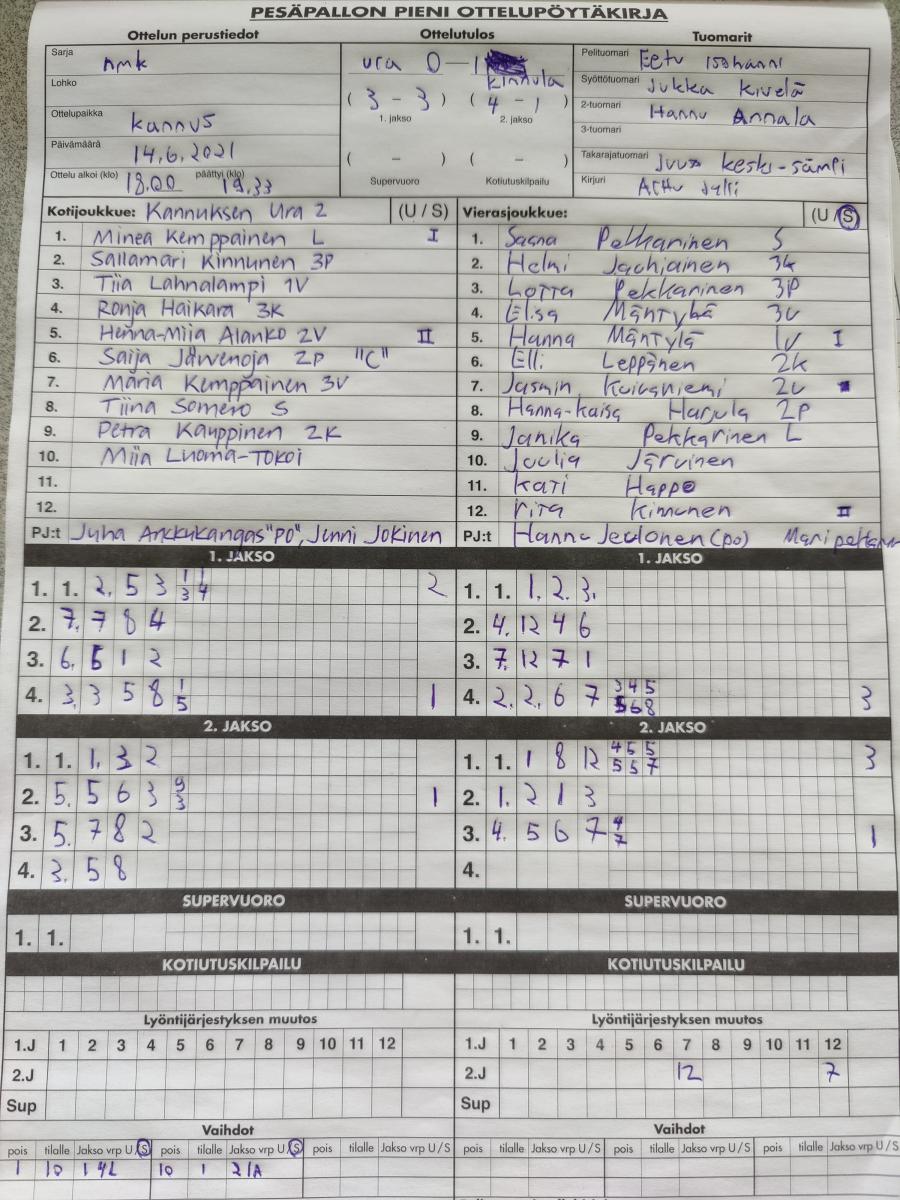 PESÄPALLON PIENI OTTELUPÖYTÄKIRJA
Ottelun perustiedot
Sarja nmk
Lohko
Ottelupaikka kannus
Päivämäärä 14.6.2021
Ottelu alkoi (klo) 18.00 päättyi (klo) 19.33
Ottelutulos
ura 0 – 1 Kinnula
( 3 – 3 ) ( 4 – 1 )
1. jakso 2. jakso
( – ) ( – )
Supervuoro Kotiutuskilpailu
Tuomarit
Pelituomari Eetu Isohanni
Syöttötuomari Jukka Kivelä
2-tuomari Hannu Annala
3-tuomari
Takarajatuomari Juus Keski-Sämpi
Kirjuri Arttu
Kotijoukkue: Kannuksen Ura 2 (U / S)
1. Minea Kemppainen L I
2. Sallamari Kinnunen 3P
3. Tiia Lahnalampi 1V
4. Ronja Haikara 3K
5. Henna-Miia Alanko 2V II
6. Saija Järvenoja 2P "C"
7. Maria Kemppainen 3V
8. Tiina Somero S
9. Petra Kauppinen 2K
10. Miia Luoma-Tokoi
11.
12.
PJ:t Juha Arkkukangas "PO", Jenni Jokinen
Vierasjoukkue: (U / S)
1. Saana Pekkarinen S
2. Helmi Jachiainen 3k
3. Lotta Pekkarinen 3P
4. Elisa Mäntylä 3v
5. Hanna Mäntylä 1v I
6. Elli Leppänen 2k
7. Jasmin Koivaniemi 2v
8. Hanna-Kaisa Harjula 2P
9. Janika Pekkarinen L
10. Juulia Järvinen
11. Kati Happo
12. rita Kimunen II
PJ:t Hanna Leulonen (po) Mari
1. JAKSO
1. 1. 2. 5 3 1/3 1/4 2
2. 7. 7 8 4
3. 6. 6 1 2
4. 3. 3 5 8 1/5 1
1. JAKSO
1. 1. 1. 2. 3.
2. 4. 12 4 6
3. 7. 12 7 1
4. 2. 2. 6 7 3/5 4/6 5/8 3
2. JAKSO
1. 1. 1. 3 2
2. 5. 5 6 3 9/3 1
3. 5. 7 8 2
4. 3. 5 8
2. JAKSO
1. 1. 1 8 12 4/5 5/5 5/7 3
2. 1. 2 1 3
3. 4. 5 6 7 4/7 1
4.
SUPERVUORO
1. 1.
SUPERVUORO
1. 1.
KOTIUTUSKILPAILU
KOTIUTUSKILPAILU
Lyöntijärjestyksen muutos
1.J 1 2 3 4 5 6 7 8 9 10 11 12
2.J
Sup
Lyöntijärjestyksen muutos
1.J 1 2 3 4 5 6 7 8 9 10 11 12
2.J 12 7
Sup
Vaihdot
pois tilalle Jakso vrp U/S pois tilalle Jakso vrp U/S pois tilalle Jakso vrp U/S
1 10 1 4L 10 1 2 1A
Vaihdot
pois tilalle Jakso vrp U/S pois tilalle Jakso vrp U/S pois tilalle Jakso vrp U/S